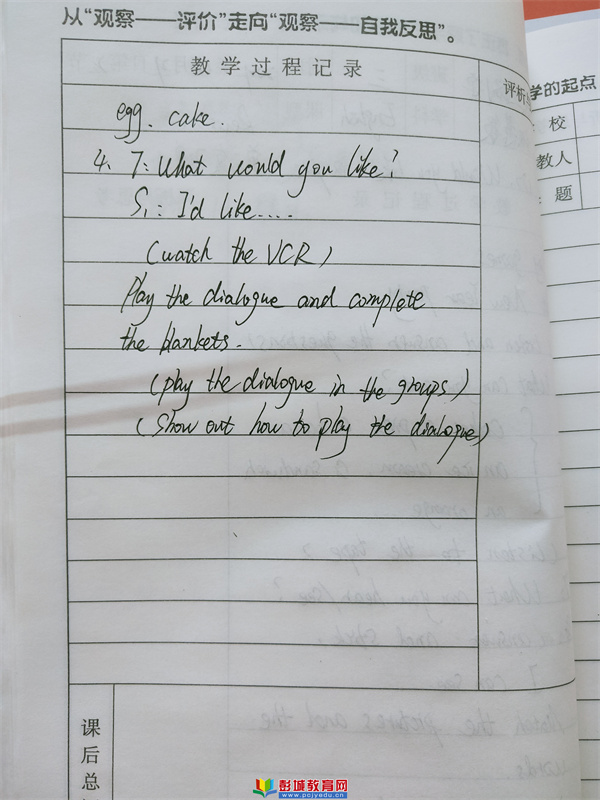 从“观察——评价”走向“观察——自我反思”。
教学过程记录
评析
egg. cake.
4. T: What would you like?
S₁: I'd like....
(watch the VCR)
Play the dialogue and complete
the blankets.
(play the dialogue in the groups)
(Show out how to play the dialogue)
课后总
学的起点
校
教人
题
彭城教育网
www.pcjyedu.cn